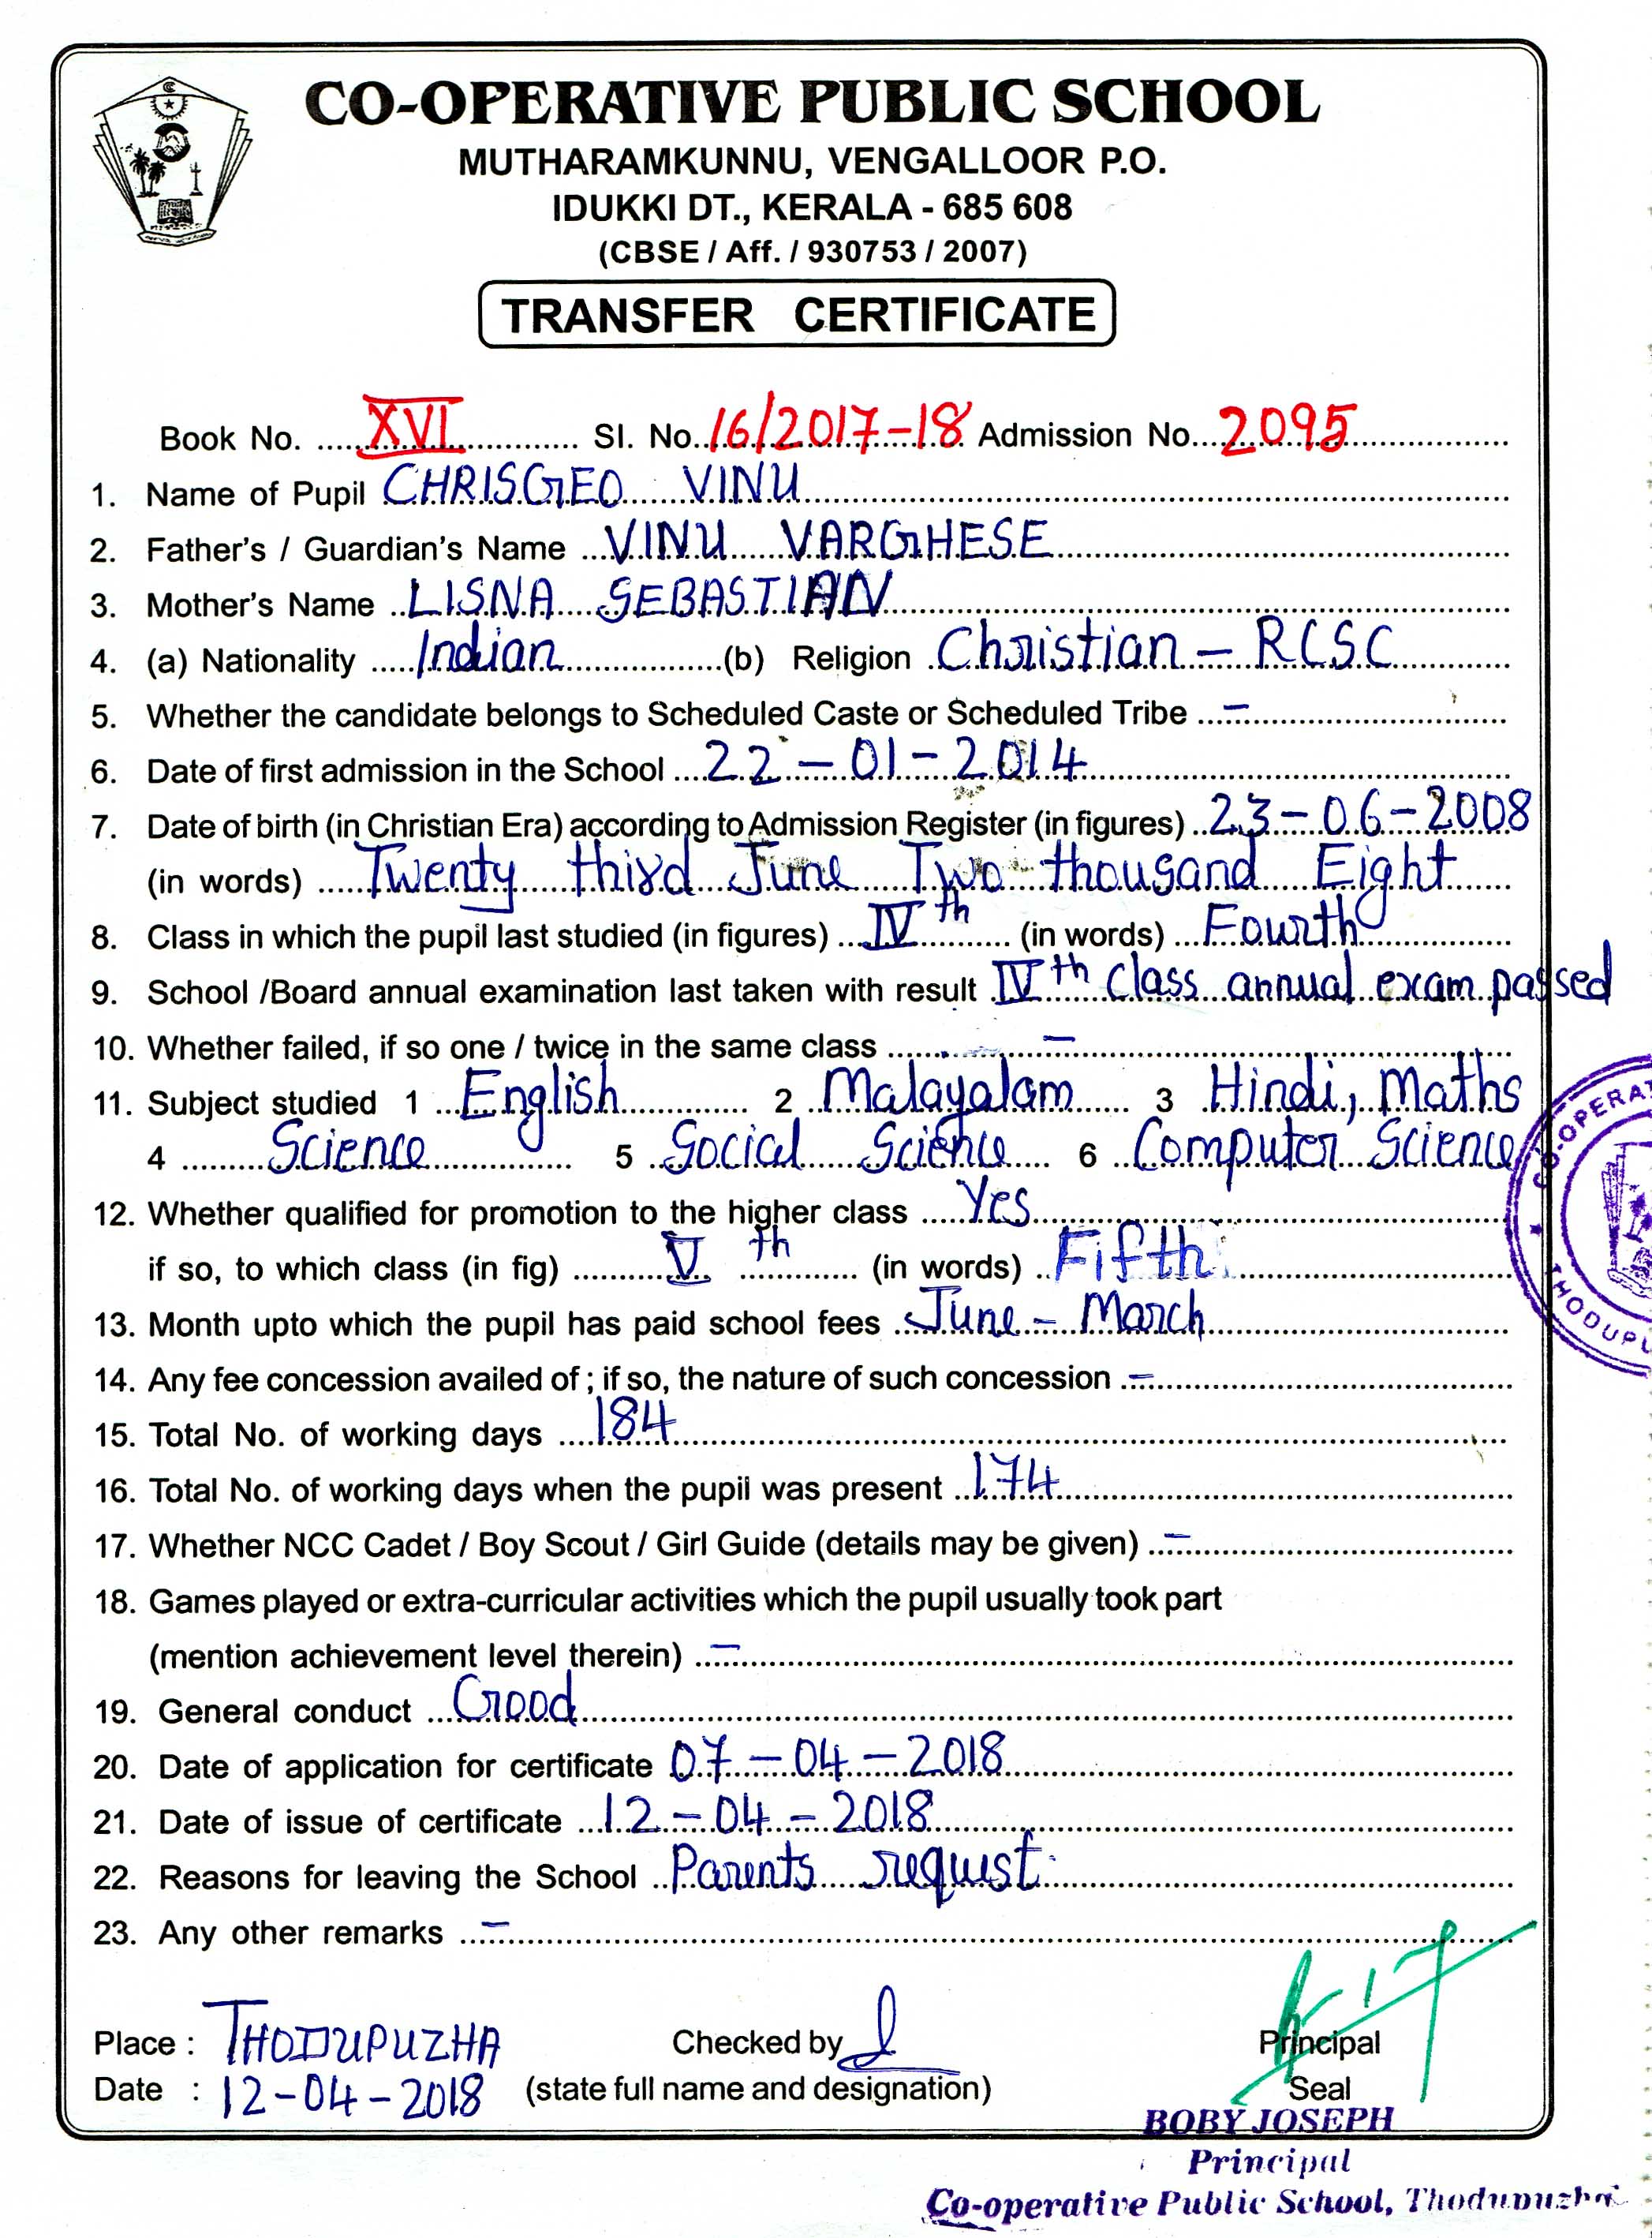 CO-OPERATIVE PUBLIC SCHOOL
MUTHARAMKUNNU, VENGALLOOR P.O.
IDUKKI DT., KERALA - 685 608
(CBSE / Aff. / 930753 / 2007)
TRANSFER CERTIFICATE
Book No. XVI Sl. No. 16/2017-18 Admission No. 2095
1. Name of Pupil CHRISGEO VINU
2. Father's / Guardian's Name VINU VARGHESE
3. Mother's Name LISNA SEBASTIAN
4. (a) Nationality Indian (b) Religion Christian - RCSC
5. Whether the candidate belongs to Scheduled Caste or Scheduled Tribe -
6. Date of first admission in the School 22-01-2014
7. Date of birth (in Christian Era) according to Admission Register (in figures) 23-06-2008
(in words) Twenty third June Two thousand Eight
8. Class in which the pupil last studied (in figures) IVth (in words) Fourth
9. School /Board annual examination last taken with result IVth class annual exam passed
10. Whether failed, if so one / twice in the same class -
11. Subject studied 1 English 2 Malayalam 3 Hindi, Maths
4 Science 5 Social Science 6 Computer Science
12. Whether qualified for promotion to the higher class Yes
if so, to which class (in fig) Vth (in words) Fifth
13. Month upto which the pupil has paid school fees June - March
14. Any fee concession availed of ; if so, the nature of such concession -
15. Total No. of working days 184
16. Total No. of working days when the pupil was present 174
17. Whether NCC Cadet / Boy Scout / Girl Guide (details may be given) -
18. Games played or extra-curricular activities which the pupil usually took part
(mention achievement level therein) -
19. General conduct Good
20. Date of application for certificate 07-04-2018
21. Date of issue of certificate 12-04-2018
22. Reasons for leaving the School Parents request
23. Any other remarks -
Place : THODUPUZHA Checked by Principal
Date : 12-04-2018 (state full name and designation) Seal
BOBY JOSEPH
Principal
Co-operative Public School, Thodupuzha
CO-OPERAT
THODUPU